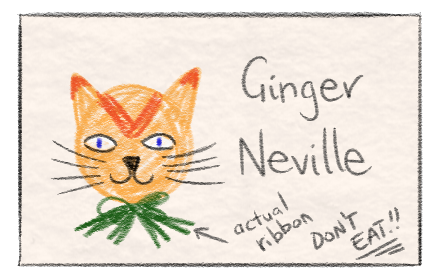 Ginger
Neville
actual
ribbon
DON'T
EAT!!